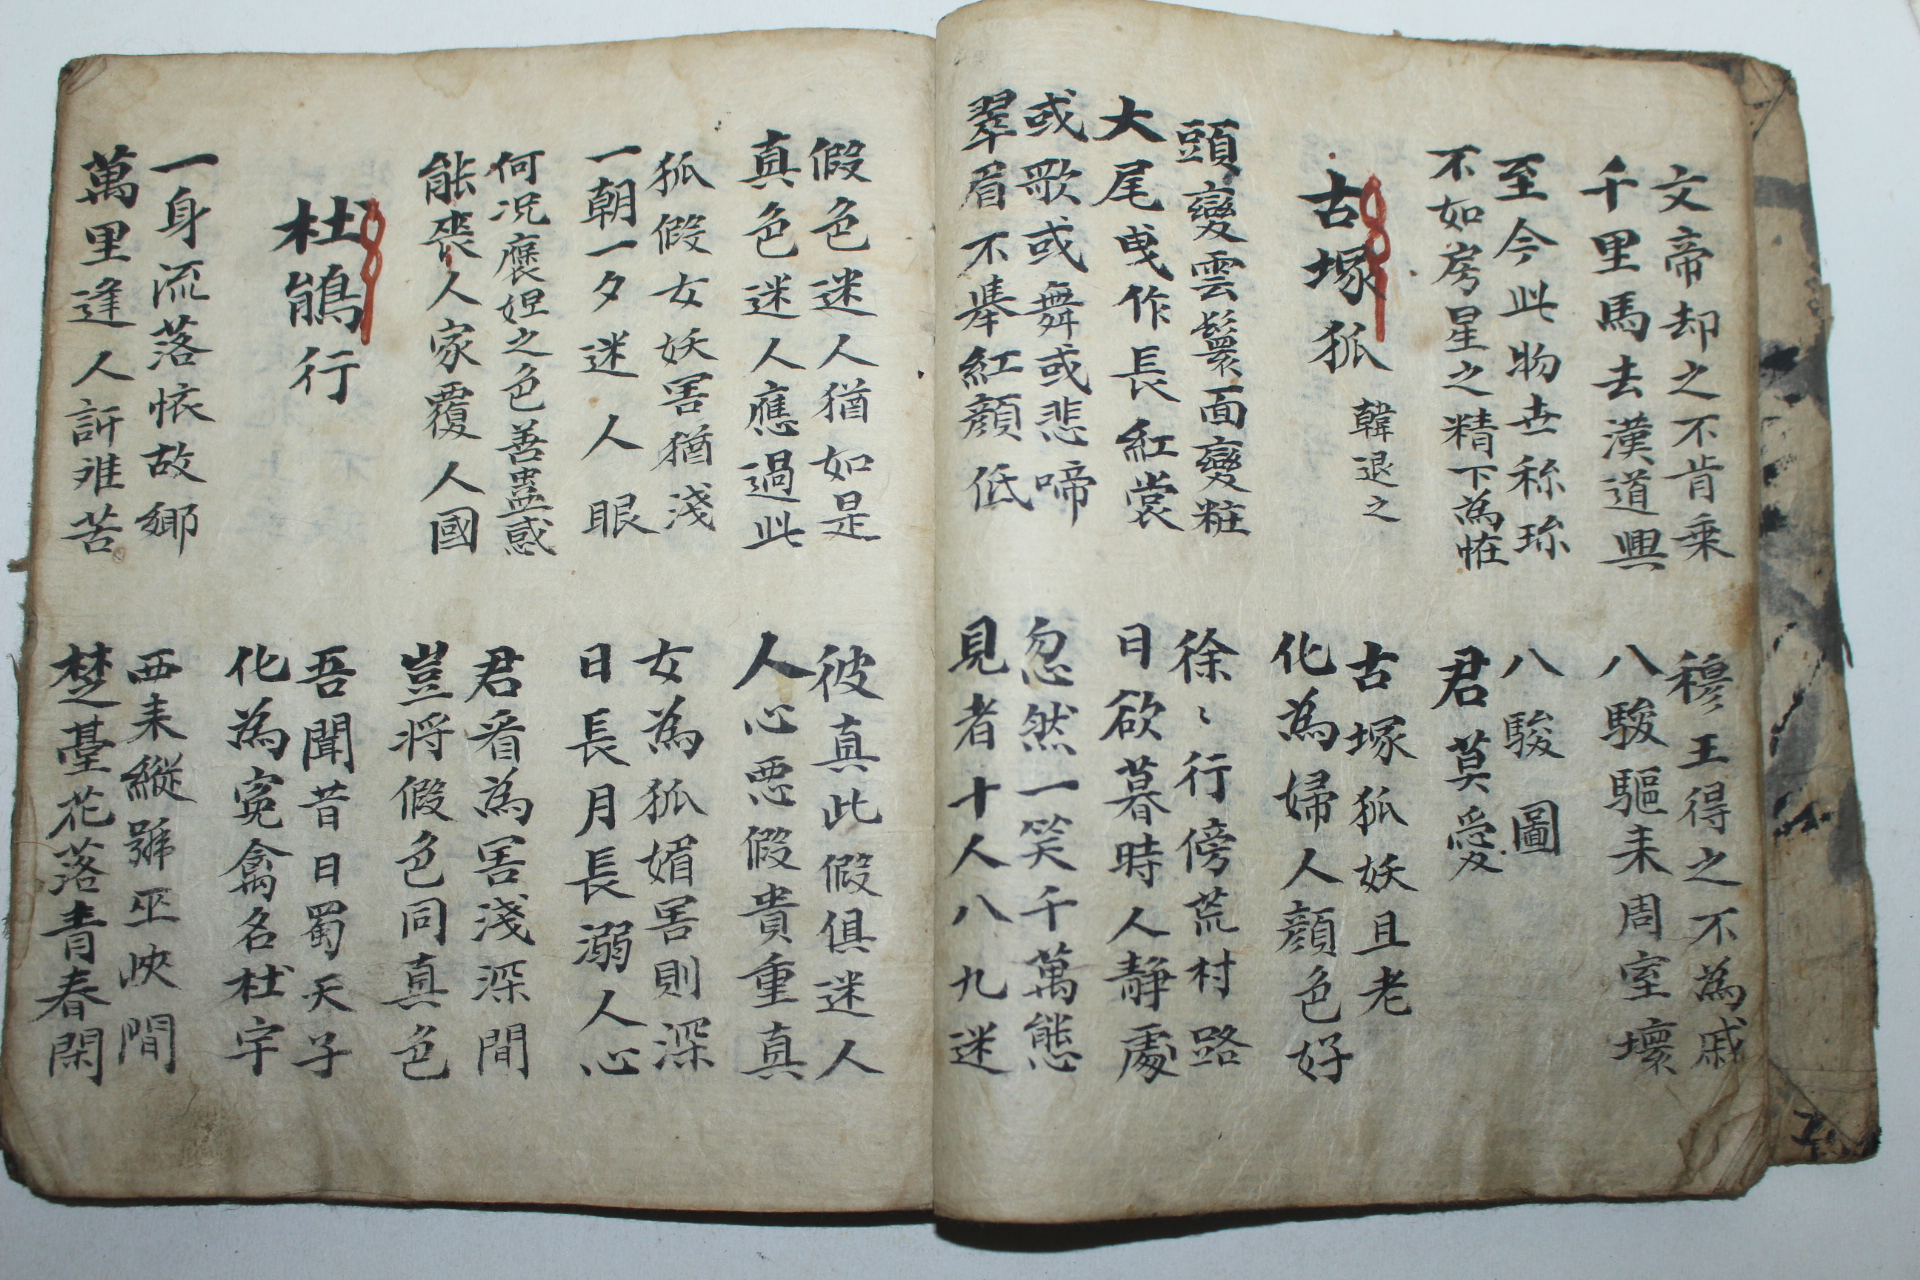 文帝却之不肯乗
千里馬去漢道興
穆王得之不為戚
八駿驅耒周室壞
至今此物世称珎
不如房星之精下為恠
八駿圖
君莫愛
古塚狐 韓退之
古塚狐妖且老
化為婦人顔色好
頭變雲鬟面變粧
大尾曳作長紅裳
徐〻行傍荒村路
日欲暮時人静處
或歌或舞或悲啼
翠眉不擧紅顔低
忽然一笑千萬態
見者十人八九迷
假色迷人猶如是
真色迷人應過此
彼真此假俱迷人
人心悪假貴重真
狐假女妖害猶淺
一朝一夕迷人眼
女為狐媚害則深
日長月長溺人心
何况褒妲之色善蠱惑
能喪人家覆人國
君看為害淺深間
豈将假色同真色
杜鵑行
吾聞昔日蜀天子
化為寃禽名杜宇
一身流落故郷
萬里逢人难苦
西耒縱號巫峽間
楚臺花落青春閑